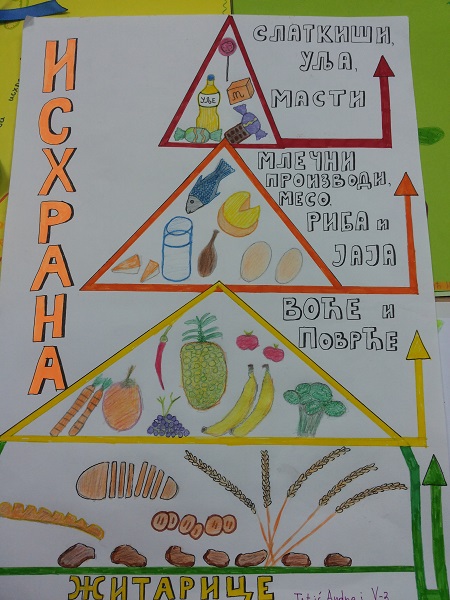 ИСХРАНА
СЛАТКИШИ,
УЉА,
МАСТИ
УЉЕ
МЛЕЧНИ
ПРОИЗВОДИ,
МЕСО,
РИБА И
ЈАЈА
ВОЋЕ И
ПОВРЋЕ
ЖИТАРИЦЕ
V-2